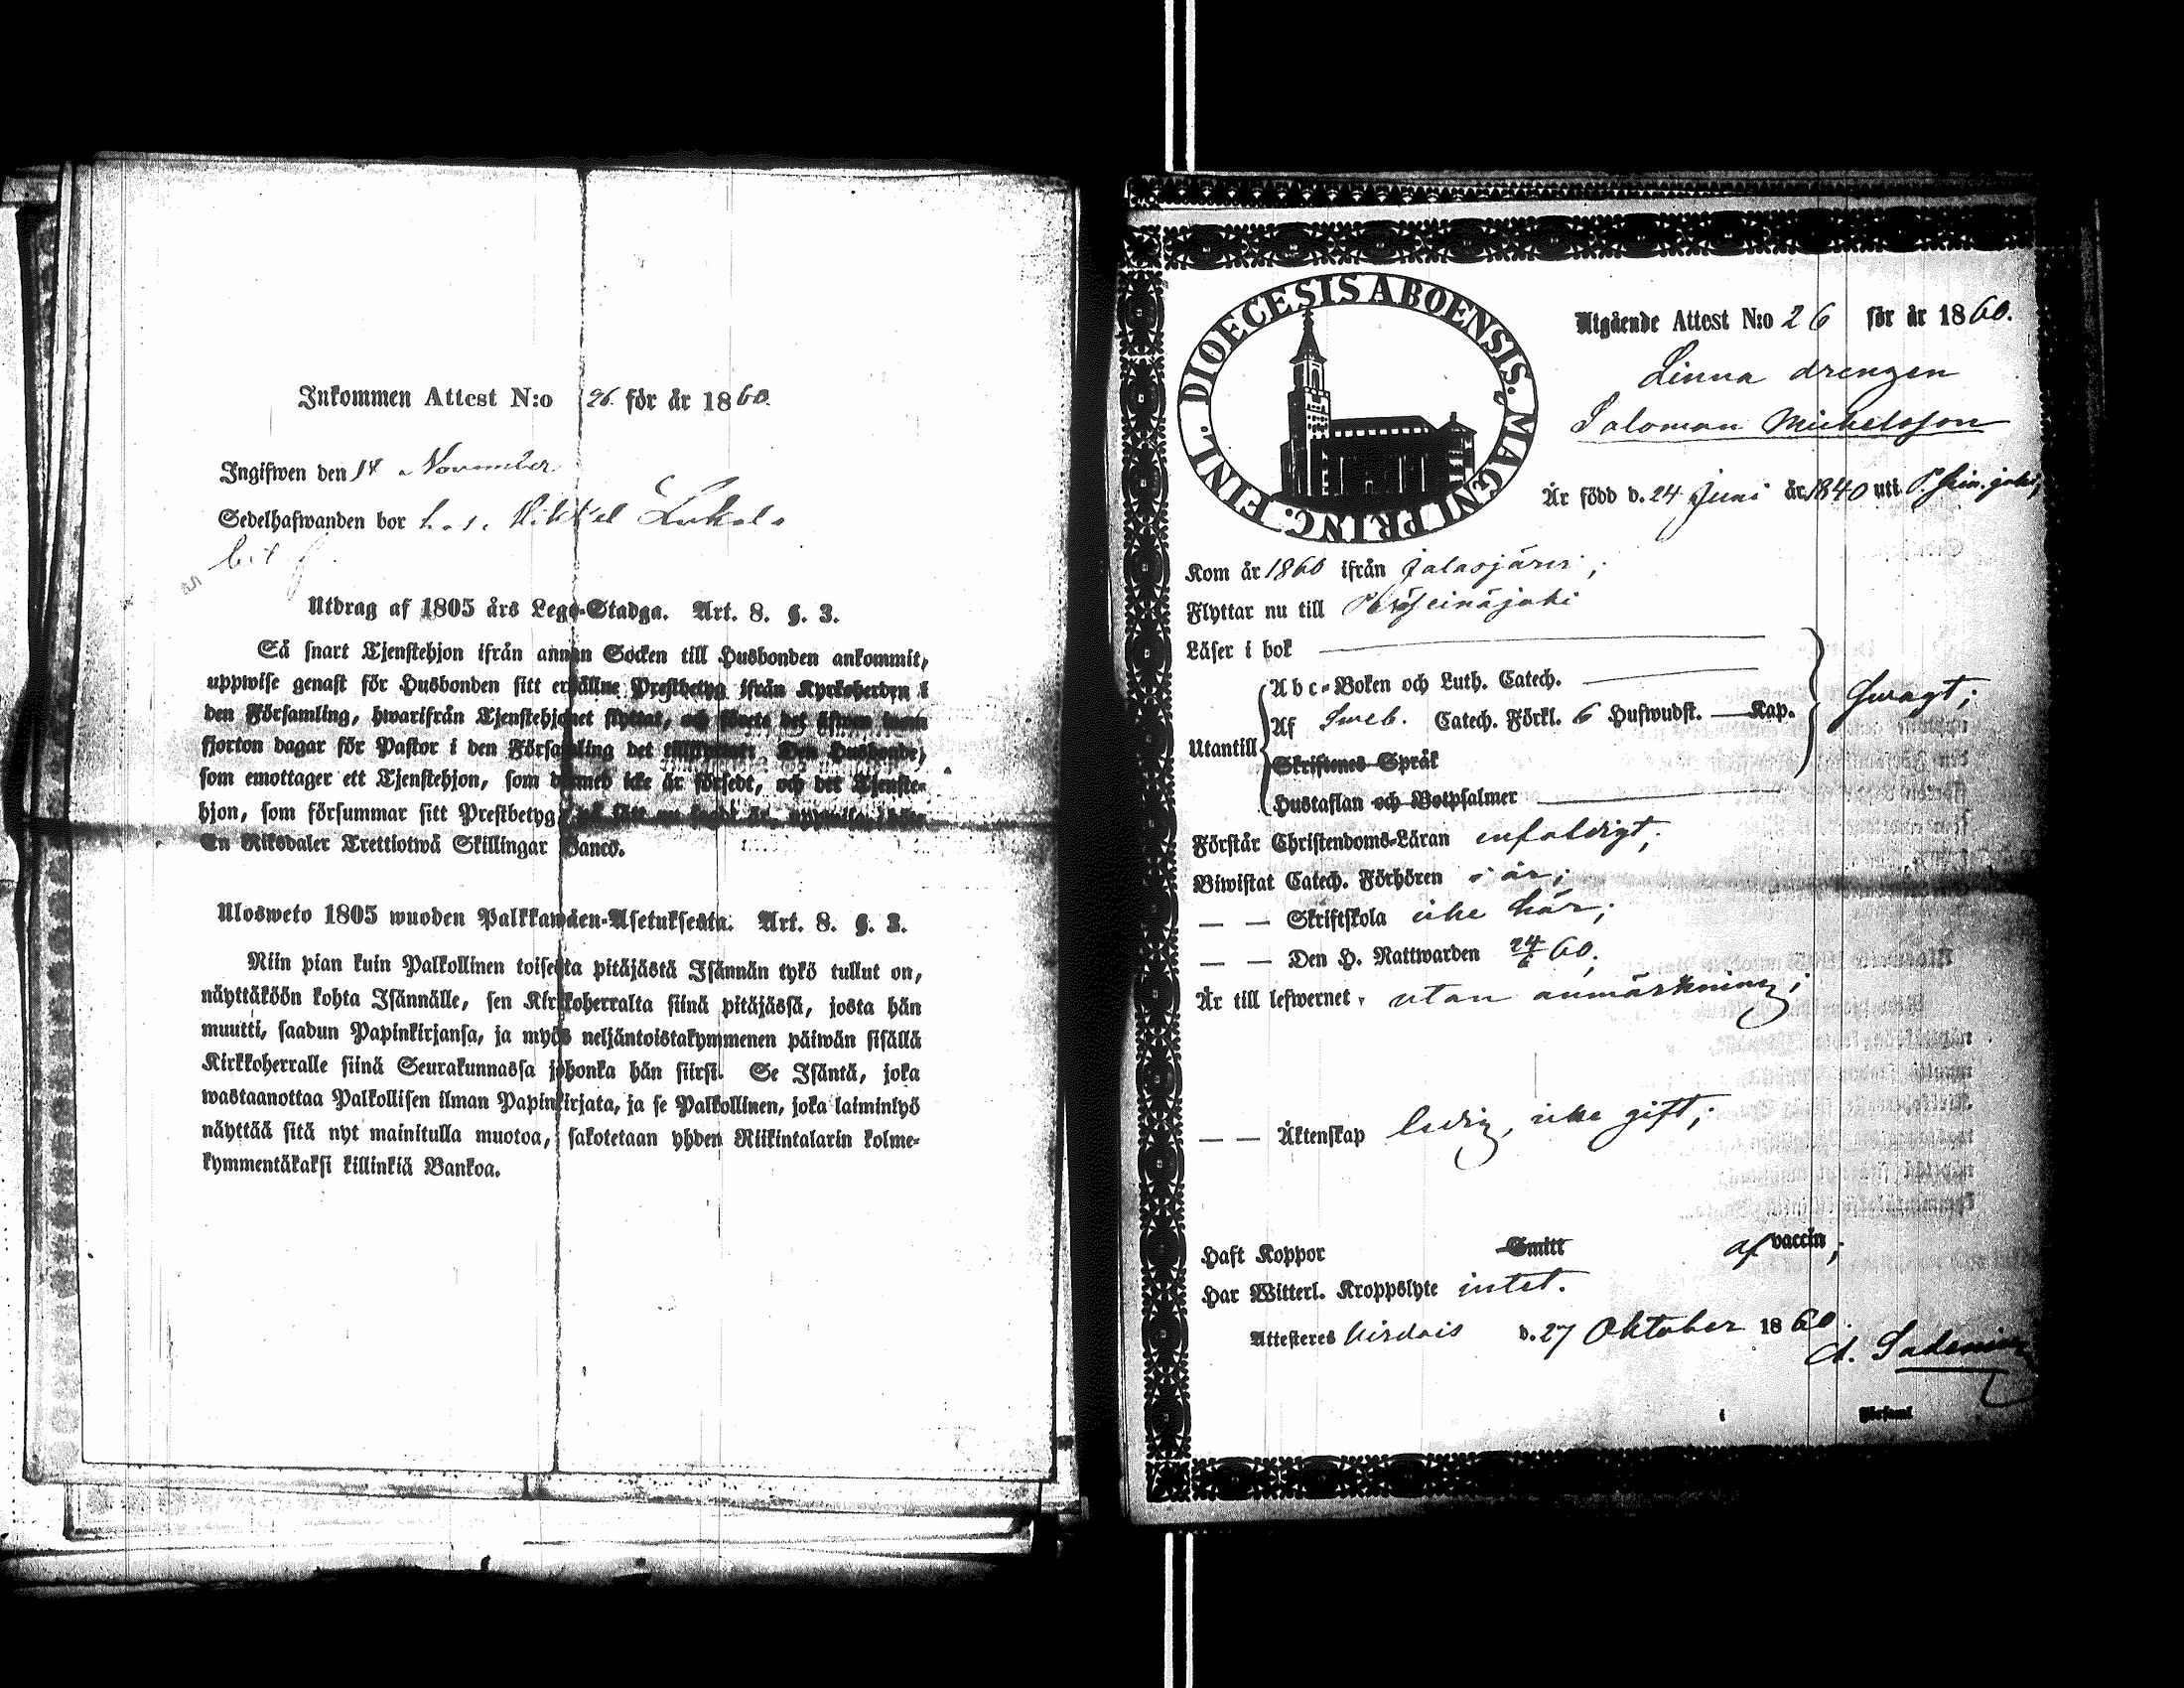 Inkommen Attest N:o 26. för år 1860.
Ingifwen den 14 November
Sedelhafwanden bor h. s. Mikkel Lukala
Utdrag af 1805 års Lego-Stadga. Art. 8. §. 3.
Så snart Tjenstehjon ifrån annan Socken till Husbonden ankommit,
uppwise genast för Husbonden sitt erhållne Prestbetyg ifrån Kyrkoherden i
den Församling, hwarifrån Tjenstehjonet flyttat, och
fjorton dagar för Pastor i den Församling det Den Husbonde,
som emottager ett Tjenstehjon, som dermed icke är försedt, och det Tjenste-
hjon, som försummar sitt Prestbetyg
En Riksdaler Trettiotwå Skillingar Banco.
Ulosweto 1805 wuoden Palkkawäen-Asetuksesta. Art. 8. §. 3.
Niin pian kuin Palkollinen toisesta pitäjästä Isännän tykö tullut on,
näyttäköön kohta Isännälle, sen Kirkkoherralta siinä pitäjässä, josta hän
muutti, saadun Papinkirjansa, ja myös neljäntoistakymmenen päiwän sisällä
Kirkkoherralle siinä Seurakunnassa johonka hän siirsi. Se Isäntä, joka
wastaanottaa Palkollisen ilman Papinkirjata, ja se Palkollinen, joka laiminlyö
näyttää sitä nyt mainitulla muotoa, sakotetaan yhden Riikintalarin kolme-
kymmentäkaksi killinkiä Bankoa.
DIOECESIS ABOENSIS. MAGNI PRINC. FINL.
Utgående Attest N:o 26 för år 1860.
Linna drengen
Salomon Michelsson
Är född d. 24 Juni år 1840 uti
Kom år 1860 ifrån Jalasjärvi;
Flyttar nu till Seinäjoki
Läser i bok
Abc-Boken och Luth. Catech.
Utantill Af Sweb. Catech. Förkl. 6 Hufwudst. Kap. swagt;
Skriftenes Språk
Hustaflan och Botpsalmer
Förstår Christendoms-Läran enfaldigt;
Biwistat Catech. Förhören i år;
— — Skriftskola icke här;
— — Den H. Nattwarden 24/6 60;
Är till lefwernet, utan anmärkning;
— — Äktenskap ledig, icke gift;
Haft Koppor Smitt af vaccin;
Har Witterl. Kroppslyte intet.
Attesteres Virdois d. 27 Oktober 1860.
i Församl